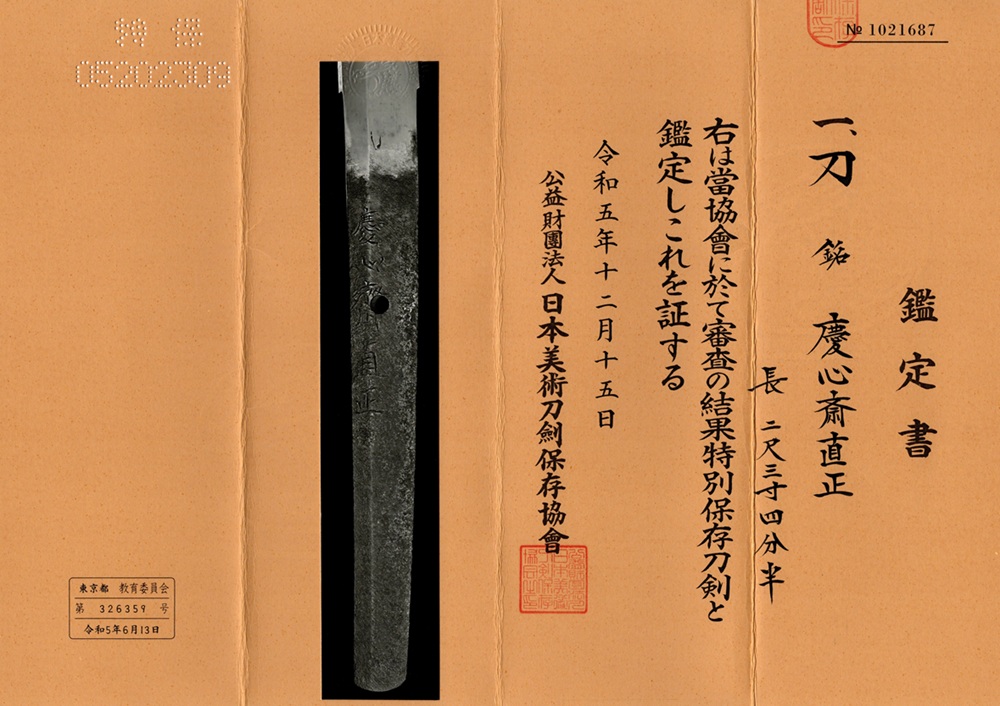 № 1021687
鑑定書
一、刀 銘 慶心斎直正
長 二尺三寸四分半
右は當協會に於て審査の結果特別保存刀剣と
鑑定しこれを証する
令和五年十二月十五日
公益財團法人 日本美術刀劍保存協會
慶心斎直正
特保
05202309
東京都 教育委員会
第 326359 号
令和5年6月13日